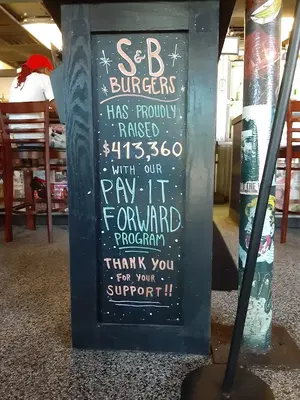 S&B
BURGERS
HAS PROUDLY
RAISED
$413,360
WITH OUR
PAY IT
FORWARD
PROGRAM
THANK YOU
FOR YOUR
SUPPORT!!